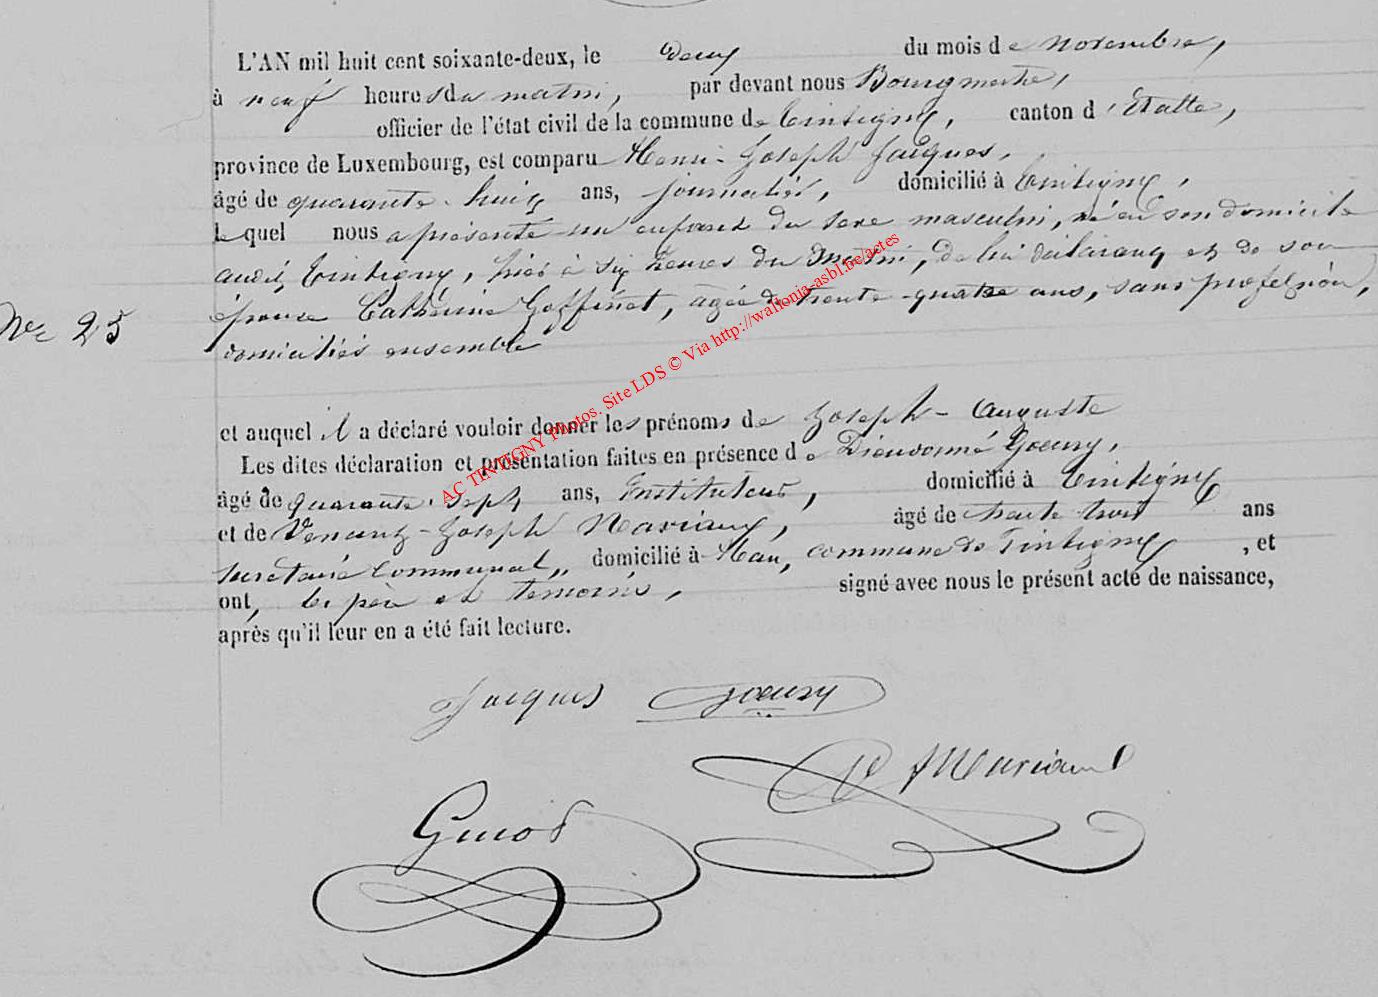 L'AN mil huit cent soixante-deux, le deux du mois de novembre,
à neuf heures du matin, par devant nous Bourgmestre,
officier de l'état civil de la commune de Tintigny, canton d'Etalle,
province de Luxembourg, est comparu Henri-Joseph Jacques,
âgé de quarante-huit ans, journalier, domicilié à Tintigny,
lequel nous a présenté un enfant du sexe masculin, né en son domicile
audit Tintigny, hier à six heures du matin, de lui déclarant et de son
épouse Catherine Goffinet, âgée de trente-quatre ans, sans profession,
domiciliés ensemble
No 25
et auquel il a déclaré vouloir donner les prénoms de Joseph-Auguste
Les dites déclaration et présentation faites en présence de Dieudonné Goeury,
âgé de quarante-sept ans, Instituteur, domicilié à Tintigny
et de Venant-Joseph âgé de trente trois ans
secrétaire communal, domicilié à Han, commune de Tintigny, et
ont, le père et témoins, signé avec nous le présent acte de naissance,
après qu'il leur en a été fait lecture.
Jacques Goeury
AC TINTIGNY Photos. Site LDS © Via http://wallonia-asbl.be/actes